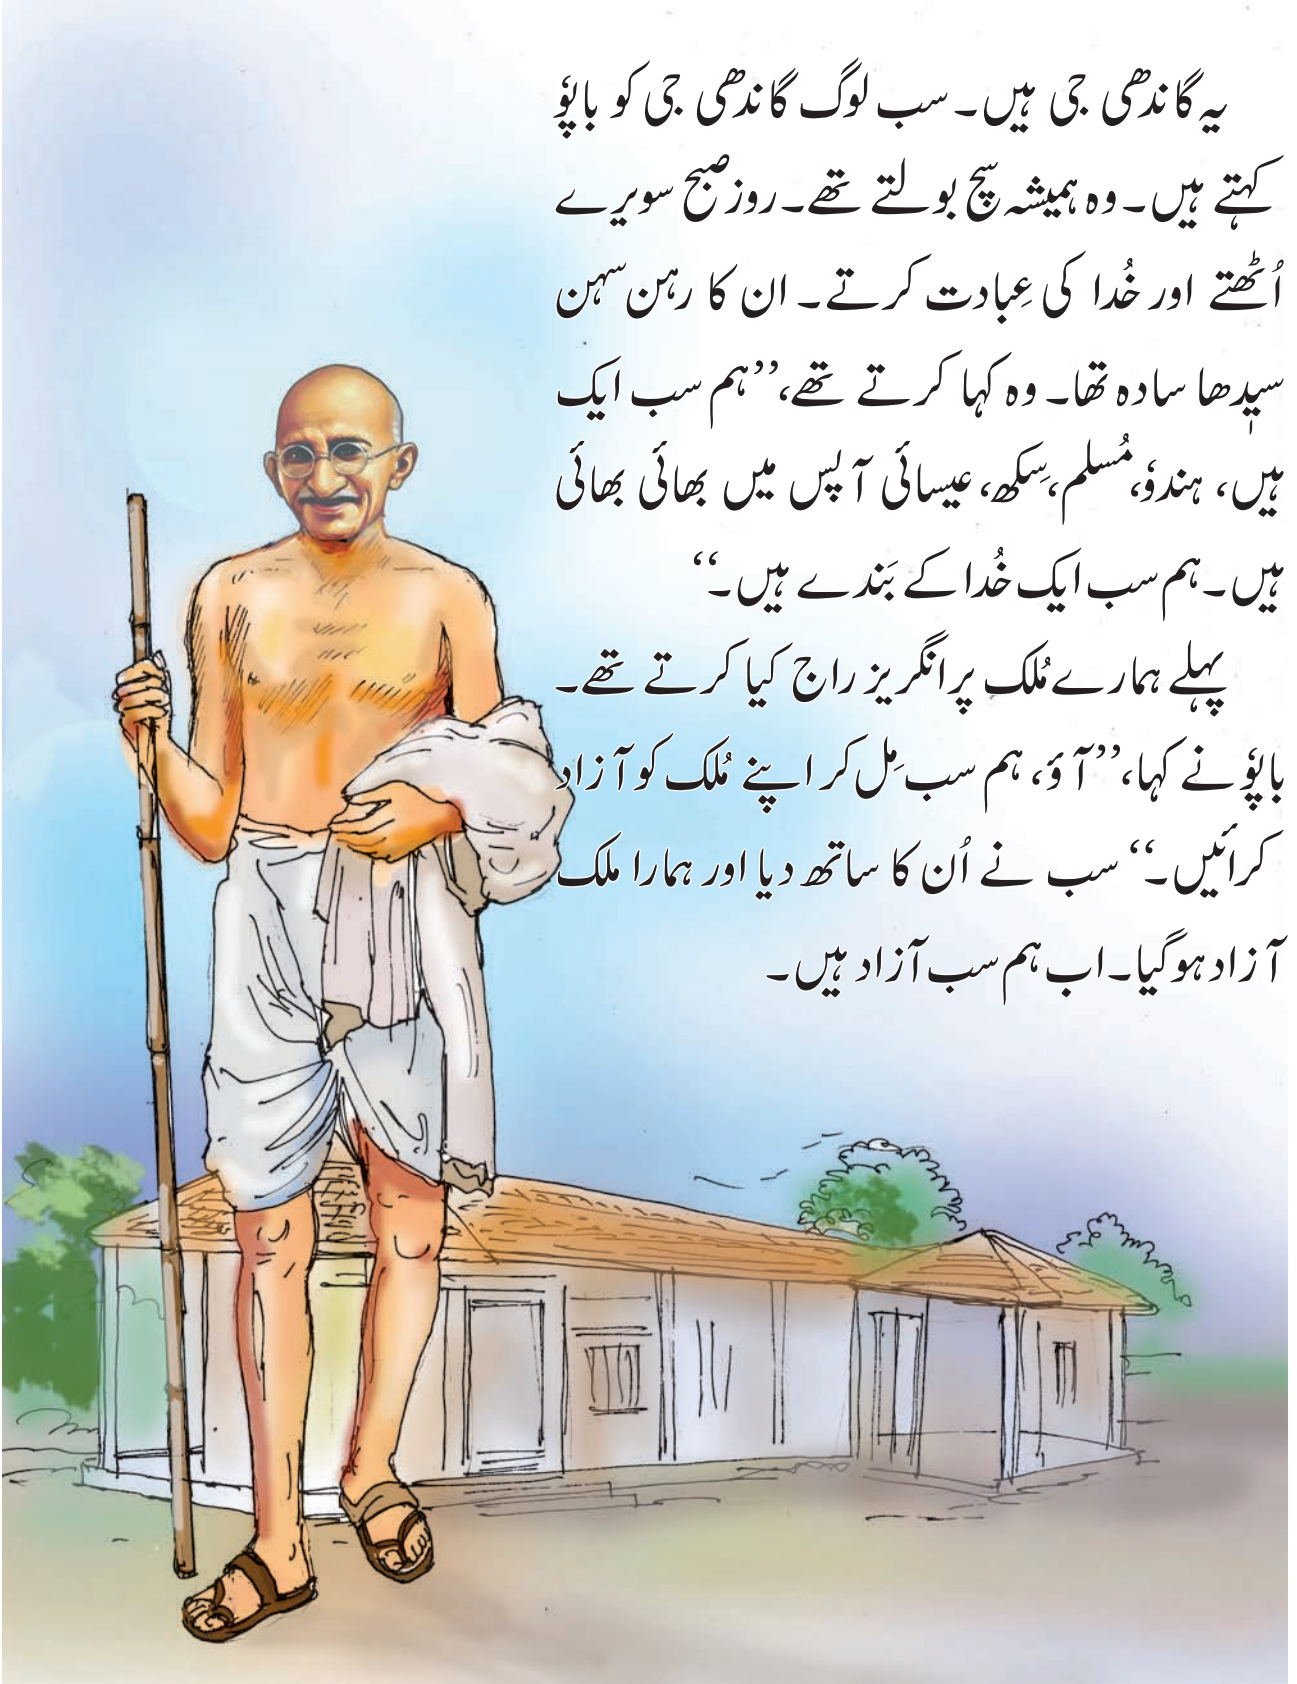 یہ گاندھی جی ہیں۔ سب لوگ گاندھی جی کو باپوٗ
کہتے ہیں۔ وہ ہمیشہ سچ بولتے تھے۔ روز صبح سویرے
اُٹھتے اور خُدا کی عِبادت کرتے۔ ان کا رہن سہن
سیٖدھا سادہ تھا۔ وہ کہا کرتے تھے، ”ہم سب ایک
ہیں، ہندوٗ، مُسلم، سِکھ، عیسائی آپس میں بھائی بھائی
ہیں۔ ہم سب ایک خُدا کے بَندے ہیں۔“
پہلے ہمارے مُلک پر انگریز راج کیا کرتے تھے۔
باپوٗ نے کہا، ”آؤ، ہم سب مِل کر اپنے مُلک کو آزاد
کرائیں۔“ سب نے اُن کا ساتھ دیا اور ہمارا ملک
آزاد ہوگیا۔ اب ہم سب آزاد ہیں۔